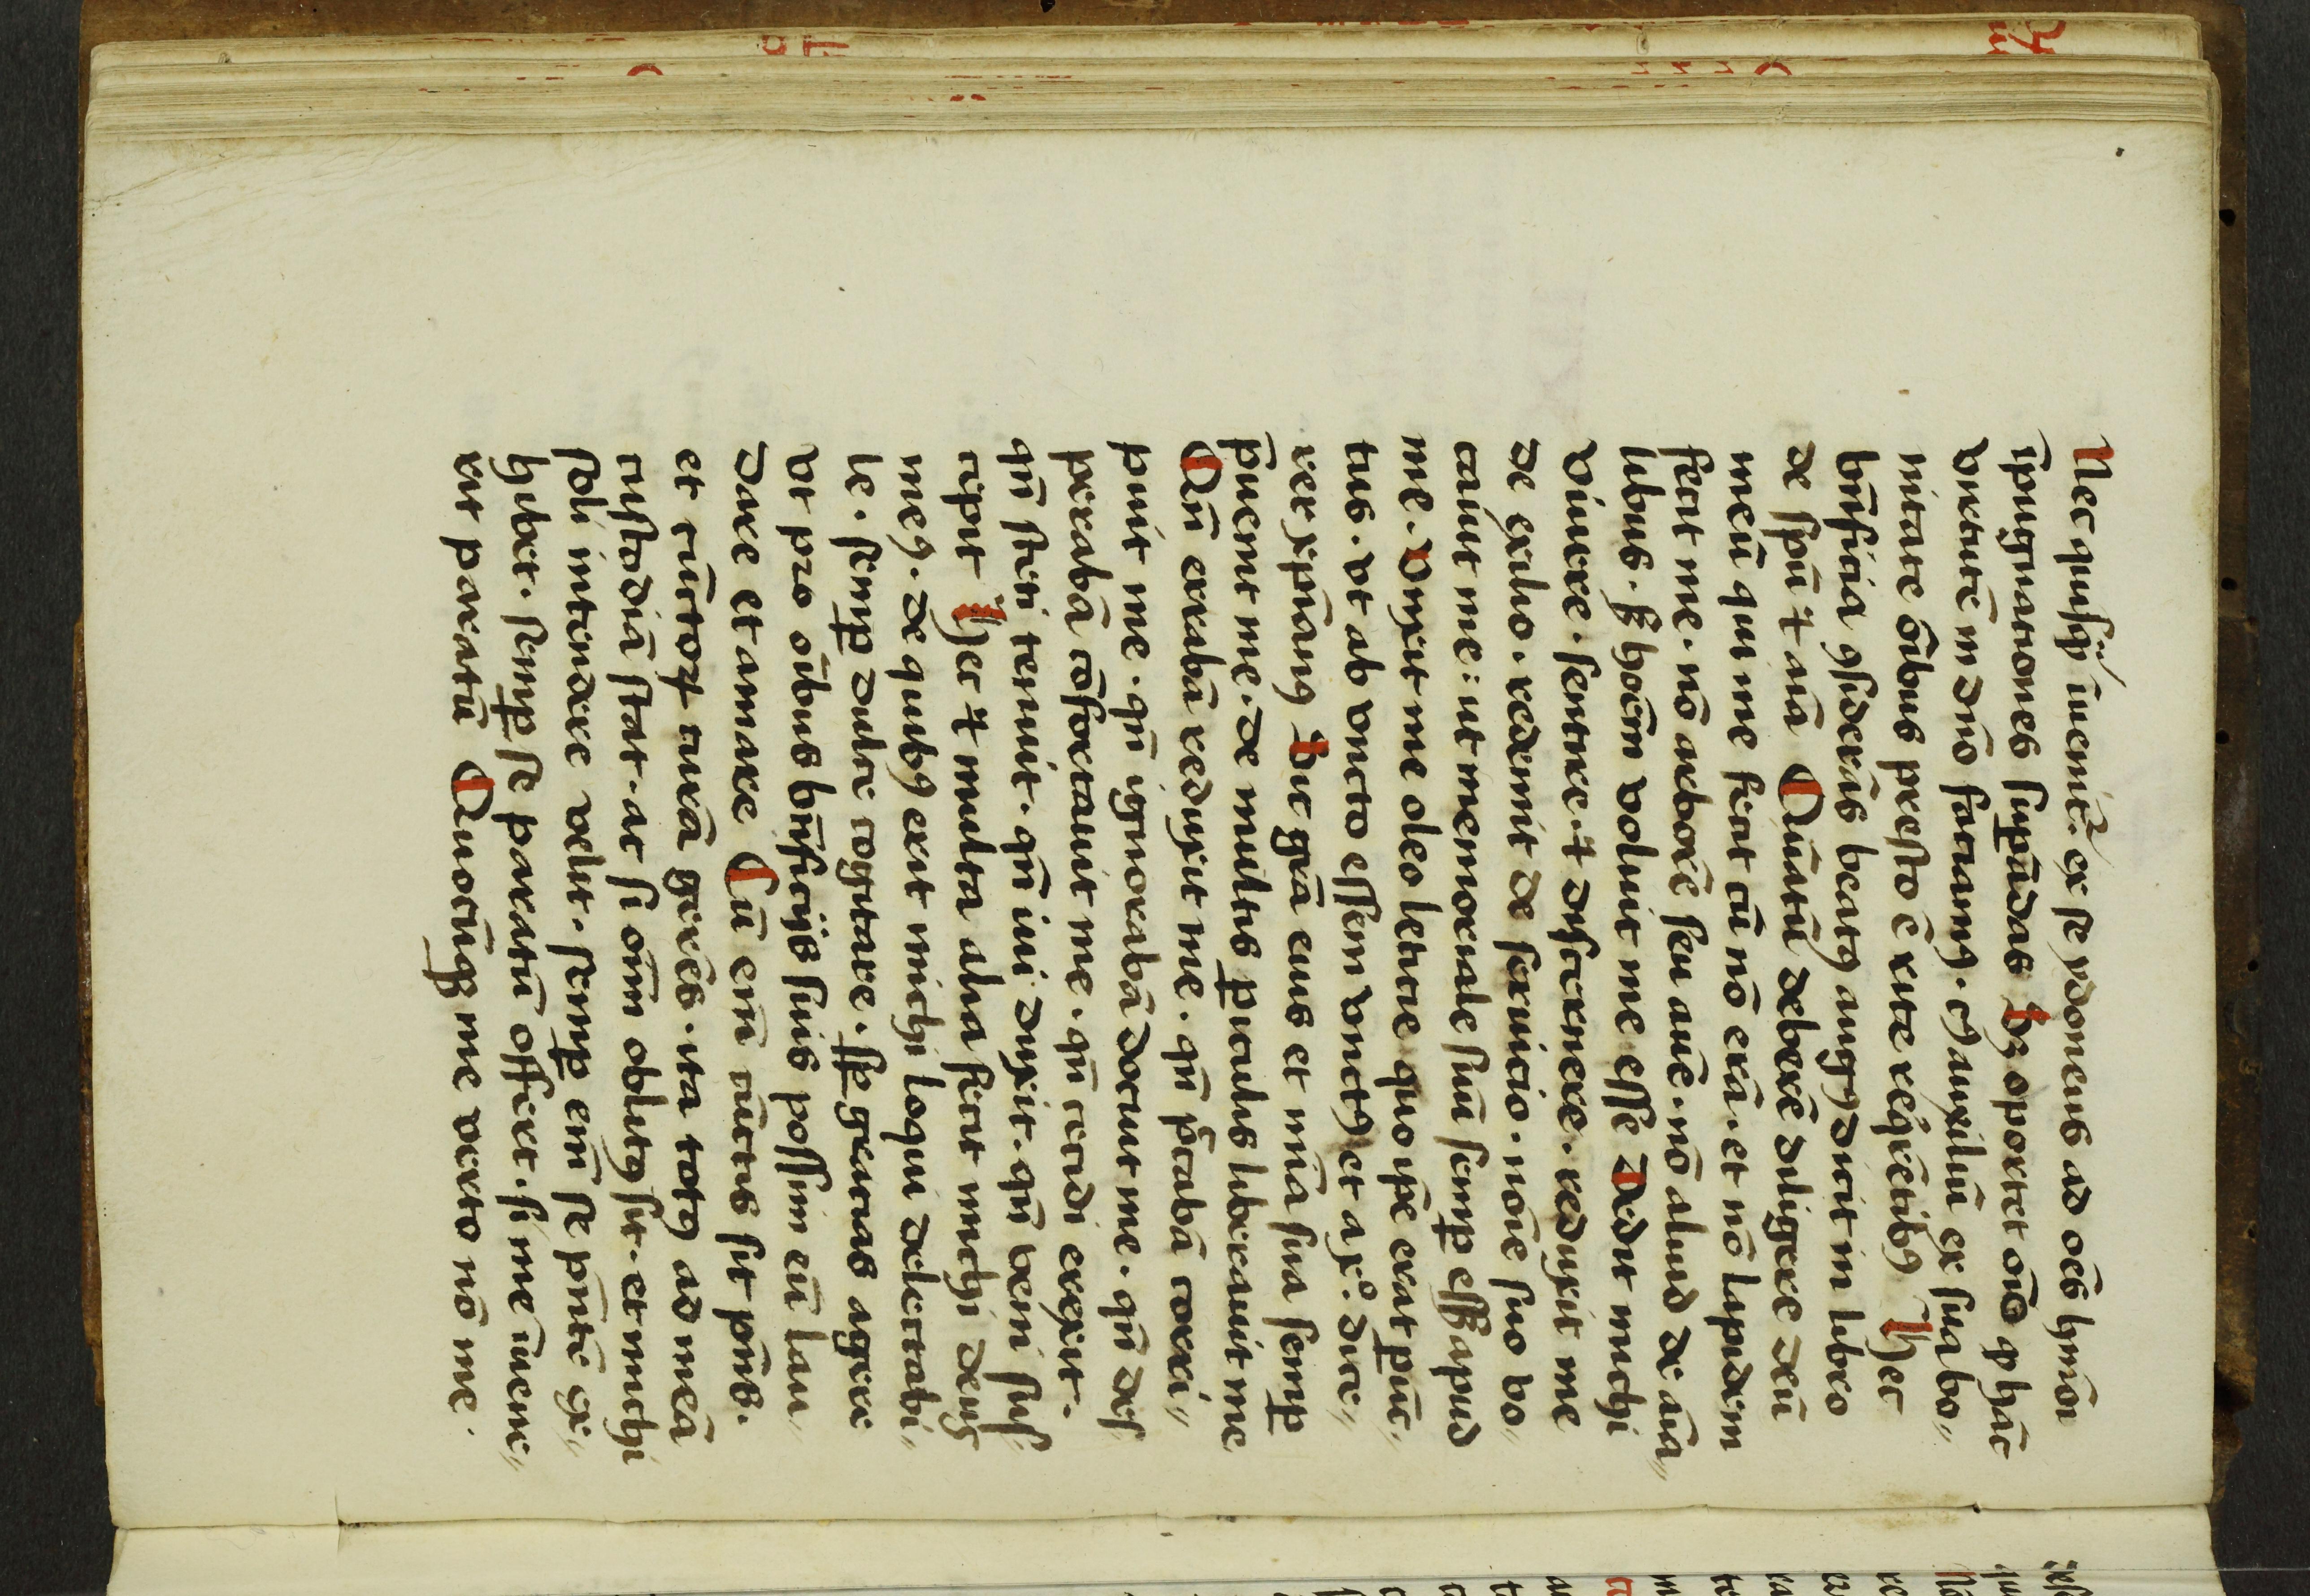 Nec quisqͣ; īueniet᷑ ex se ydoneus ad oēs hmōi
īpugnationes supādas Sꝫ oportet oīo ꝙ hāc
virtutē in dnō faciamꝯ. Et auxiliū ex sua bo〃
nitate oībus presto ē rite reqrētibꝯ Hec
bn̄ficia ꝯsiderās beatꝯ augꝯ dicit in libro
de spū ⁊ aīa Quātū deberē diligere deū
meū qui me fecit cū nō erā. et nō lapidem
fecit me. nō arborē seu auē. nō aliud de aīa〃
libus. sꝫ hoīem voluit me esse Dedit michi
viuere. sentire. ⁊ discernere. reduxit me
de exilio. redemit de seruicio. noīe suo vo〃
cauit me: ut memoriale suū semꝑ essꝫ apud
me. Vnxit me oleo leticie quo ip̄e erat ꝑūc〃
tus. vt ab vncto essem vnctꝯ et a xp̄o. dice〃
rer xpīanꝯ Sic gr̄a eius et mīa sua semꝑ
p̄uenit me. de multis ꝑiculis liberauit me
Qn̄ errabā reduxit me. qn̄ pͨcabā corri〃
puit me. qn̄ ignorabā docuit me. qn̄ des
perabā cōfortauit me. qn̄ cecidi erexit.
qn̄ steti tenuit. qn̄ iui duxit. qn̄ veni sus
cepit Hec ⁊ multa alia fecit michi deus
meꝯ. de quibꝯ erit michi loqui delectabi〃
le. semꝑ dulce cogitare. seꝑ gracias agere
vt pro oībus bn̄ficijs suis possim eū lau〃
dare et amare Cū enī cūctis sit pn̄s.
et cūctoꝝ curā gerēs. ita totꝯ ad meā
custodiā stat. ac si oīm oblitꝯ sit. et michi
soli intendere velit. semꝑ enī se pn̄tē ex〃
hibet. semꝑ se paratū offert. si me īuene〃
rit paratū Quocūqꝫ me verto nō me